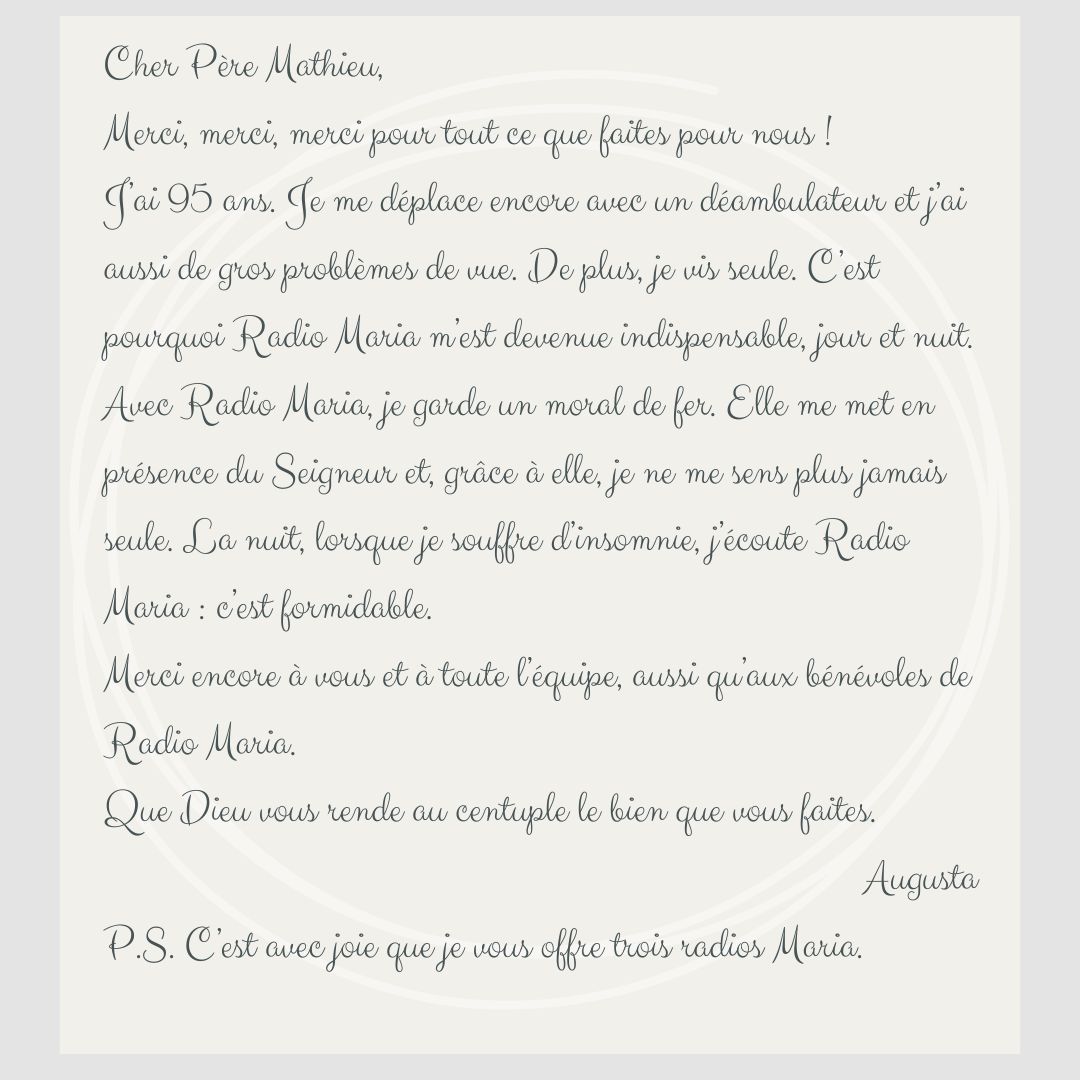 Cher Père Mathieu,
Merci, merci, merci pour tout ce que faites pour nous !
J'ai 95 ans. Je me déplace encore avec un déambulateur et j'ai
aussi de gros problèmes de vue. De plus, je vis seule. C'est
pourquoi Radio Maria m'est devenue indispensable, jour et nuit.
Avec Radio Maria, je garde un moral de fer. Elle me met en
présence du Seigneur et, grâce à elle, je ne me sens plus jamais
seule. La nuit, lorsque je souffre d'insomnie, j'écoute Radio
Maria : c'est formidable.
Merci encore à vous et à toute l'équipe, aussi qu'aux bénévoles de
Radio Maria.
Que Dieu vous rende au centuple le bien que vous faites.
Augusta
P.S. C'est avec joie que je vous offre trois radios Maria.